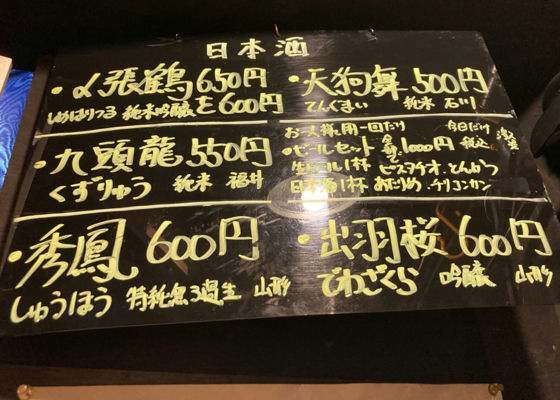 日本酒
・〆張鶴 650円
しめはりつる 純米吟醸 を600円
・天狗舞 500円
てんぐまい 純米 石川
・九頭龍 550円
くずりゅう 純米 福井
お一人様用一回だけ 今日だけ
・ビールセット 1,000円 税込
生ビール1杯 ピスタチオ、とんかつ
日本酒1杯 あたりめ、チリコンカン
・秀鳳 600円
しゅうほう 特純急3過生 山形
・出羽桜 600円
でわざくら 吟醸 山形